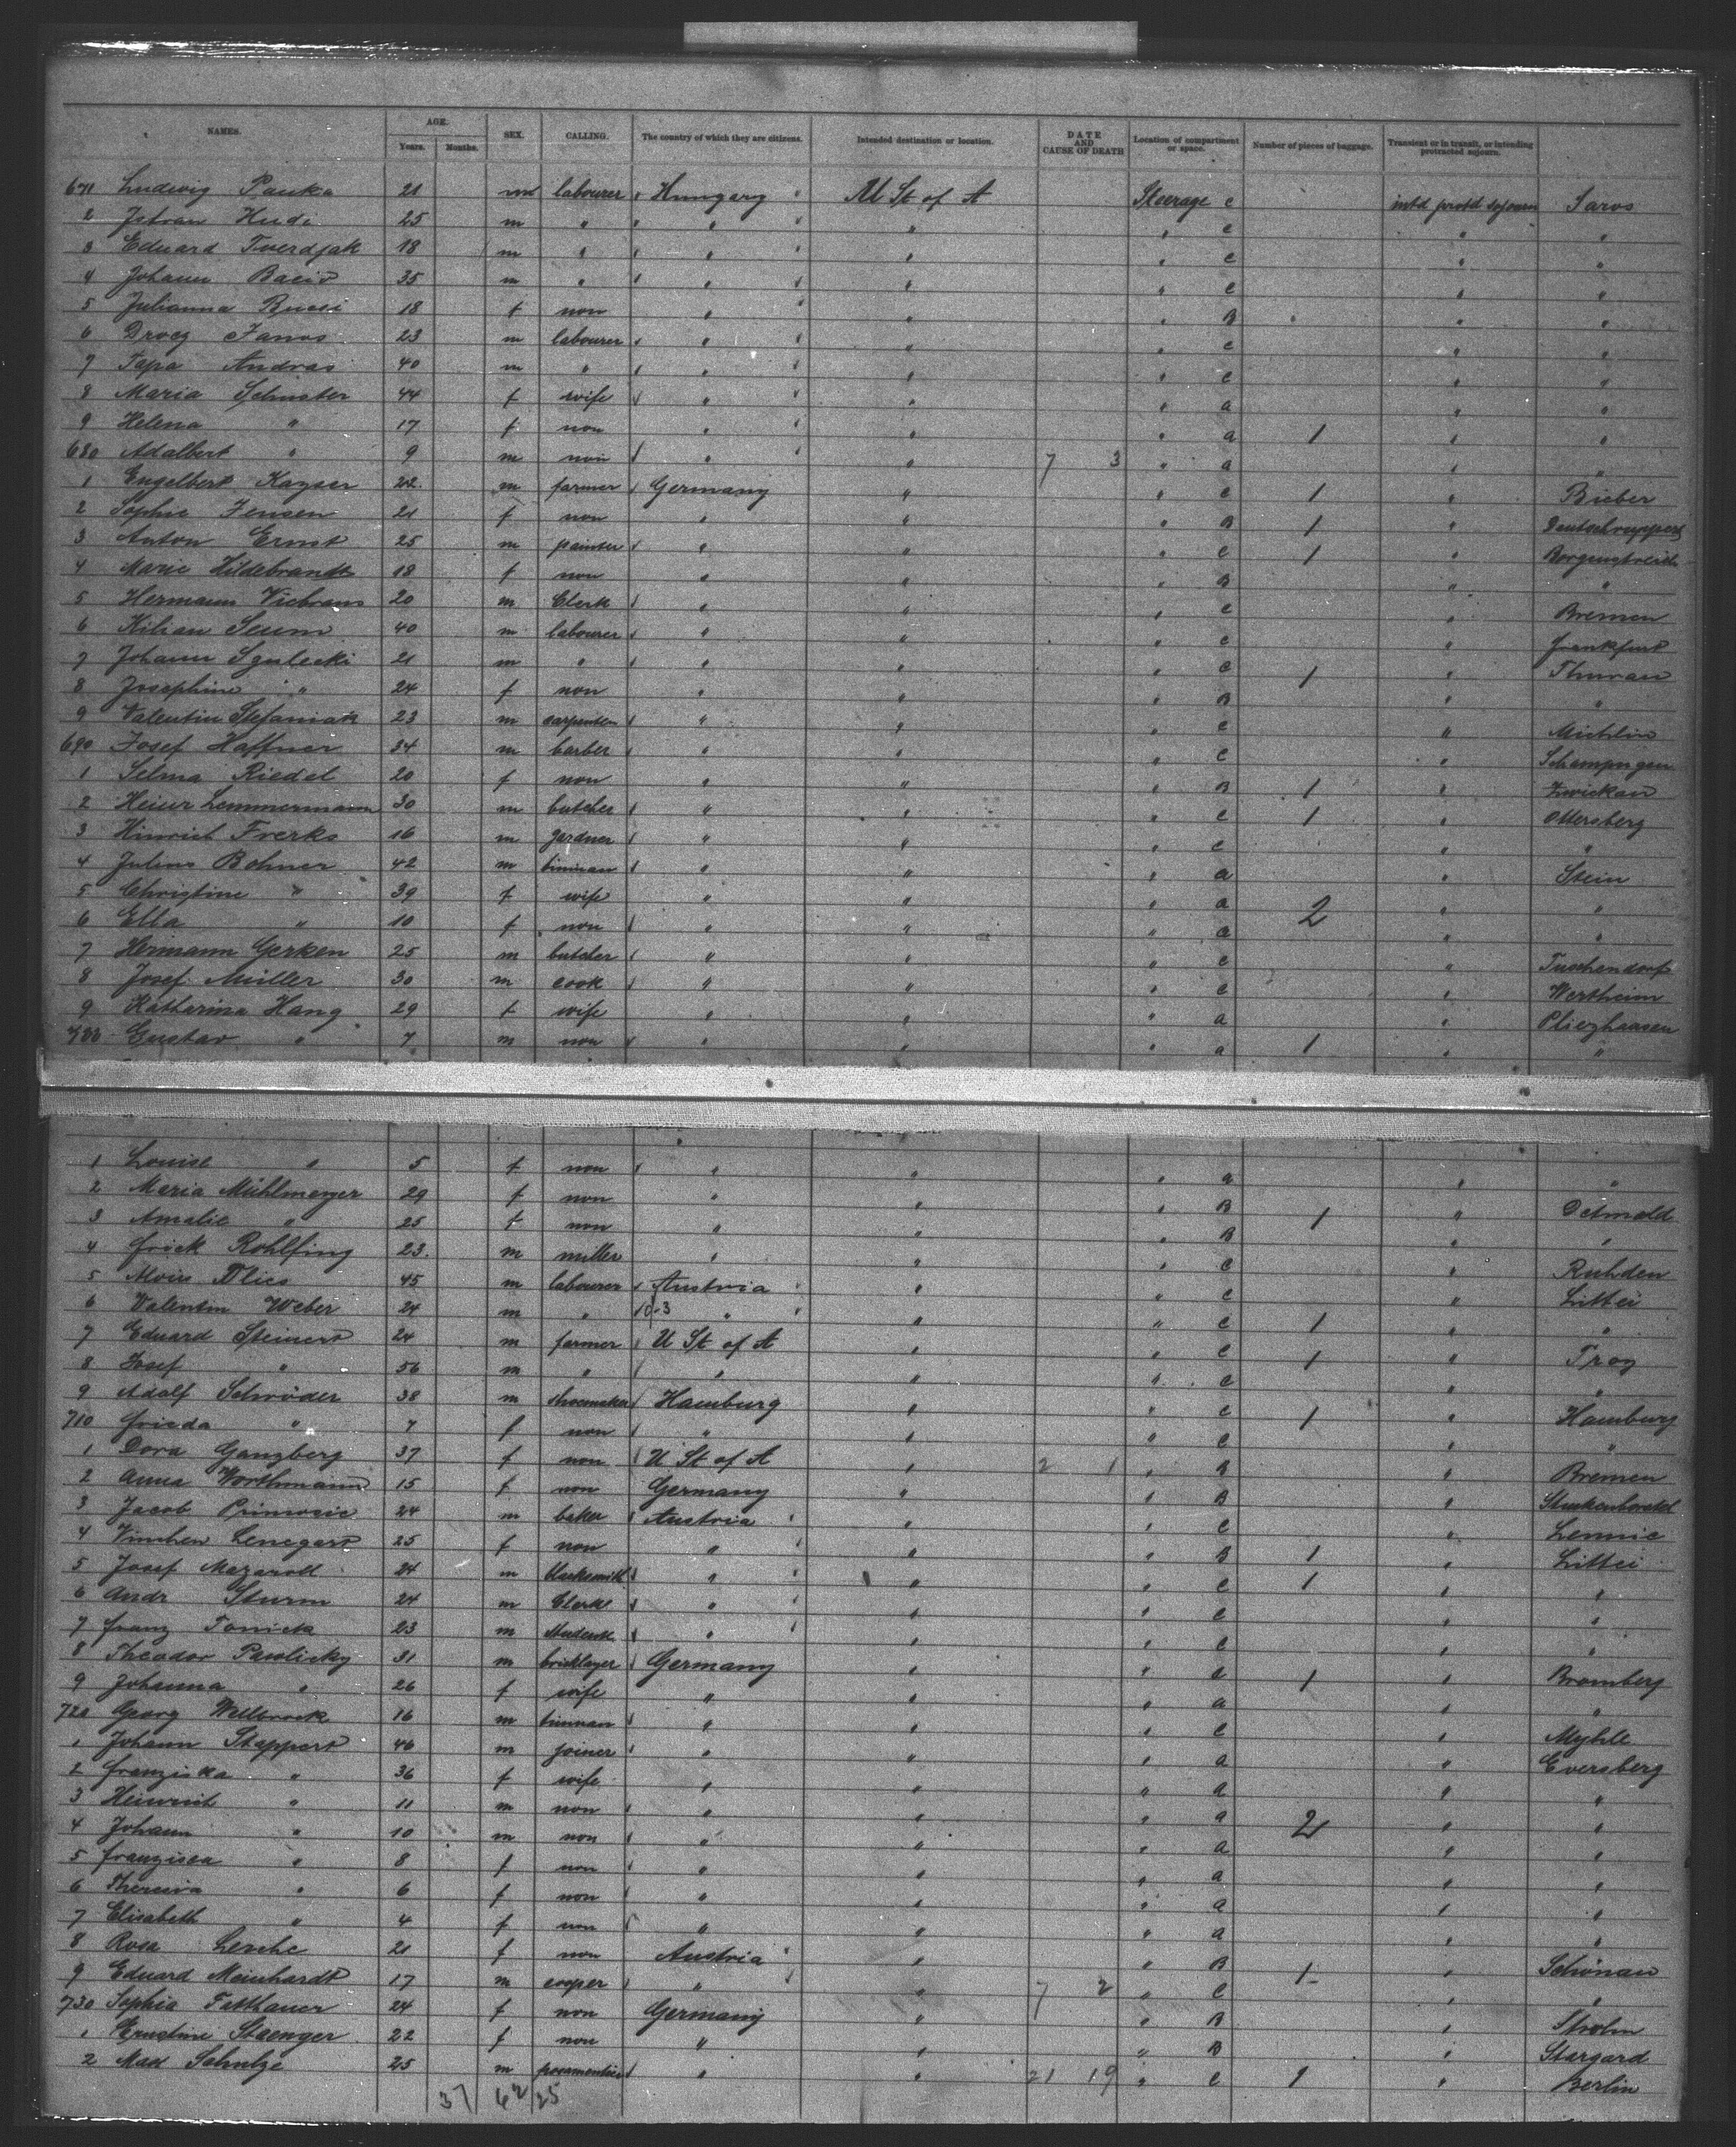 NAMES. AGE. Years. Months. SEX. CALLING. The country of which they are citizens. Intended destination or location. DATE AND CAUSE OF DEATH Location of compartment or space. Number of pieces of baggage. Transient or in transit, or intending protracted sojourn.
671 Ludwig Pauka 21 m labourer Hungary U St of A Steerage C intd protd sojourn Saros
2 Istvan Hudi 25 m " " " " C " "
3 Eduard Tverdjak 18 m " " " " C " "
4 Johann 35 m " " " " C " "
5 Julianna 18 f non " " " B " "
6 Janos 23 m labourer " " " C " "
7 Papa Andras 40 m " " " " C " "
8 Maria Schuster 44 f wife " " " a " "
9 Helena " 17 f non " " " a 1 " "
680 Adalbert " 9 m non " " 7 3 " a " "
1 Engelbert Kayser 22 m farmer Germany " " C 1 " Bieber
2 Sophie Jensen 21 f non " " " B 1 "
3 Anton Ernst 25 m painter " " " C 1 " Borgentreich
4 Marie Hildebrandt 18 f non " " " B " "
5 Hermann Viebrans 20 m Clerk " " " C " Bremen
6 Kilian Seum 40 m labourer " " " C " Frankfurt
7 Johann Sgulecki 21 m " " " " C 1 " Thuran
8 Josephine " 24 f non " " " B " "
9 Valentin Stefaniak 23 m carpenter " " " C " Michlin
690 Josef Haffner 34 m barber " " " C "
1 Selma Riedel 20 f non " " " B 1 " Zwickau
2 Heinr Lemmermann 30 m butcher " " " C 1 " Ottersberg
3 Hinrich Frerks 16 m gardner " " " C " "
4 Julius Bohner 42 m tinman " " " a " Stein
5 Christine " 39 f wife " " " a 2 " "
6 Ella " 10 f non " " " a " "
7 Hermann Gerken 25 m butcher " " " C " Tuschendorf
8 Josef Müller 30 m cook " " " C " Wertheim
9 Katharina Hang 29 f wife " " " a " Pliezhausen
700 Gustav " 7 m non " " " a 1 " "
1 Louise " 5 f non " " " a " "
2 Maria Mühlmeyer 29 f non " " " B 1 " Detmold
3 Amalie " 25 f non " " " B " "
4 Frick Rohlfing 23 m miller " " " C " Ruhden
5 Alois Vlies 45 m labourer Austria " " C " Littei
6 Valentin Weber 24 m " 10-3 " " " C 1 " "
7 Eduard Steinert 24 m farmer U St of A " " C 1 " Troy
8 Josef " 56 m " " " " C " "
9 Adolf Schröder 38 m shoemaker Hamburg " " C 1 " Hamburg
710 Frieda " 7 f non " " " C " "
1 Dora Ganzberg 37 f non U St of A " 2 1 " B " Bremen
2 Anna Worthmann 15 f non Germany " " B " Stuckenborstel
3 Jacob Primosic 24 m baker Austria " " C " Lennie
4 Vinchen Lenegart 25 f non " " " B 1 " Littei
5 Josef Mazaroll 24 m blacksmith " " " C 1 " "
6 Andr Sturm 24 m Clerk " " " C " "
7 Franz Tonick 23 m student " " " C " "
8 Theodor Pawlicky 31 m bricklayer Germany " " a 1 " Bromberg
9 Johanna " 26 f wife " " " a " "
720 Georg Wellbrock 16 m tinman " " " C " Myhle
1 Johann Stappert 46 m joiner " " " a " Eversberg
2 Franziska " 36 f wife " " " a " "
3 Heinrich " 11 m non " " " a 2 " "
4 Johann " 10 m non " " " a " "
5 Franzisca " 8 f non " " " a " "
6 Theresia " 6 f non " " " a " "
7 Elisabeth " 4 f non " " " a " "
8 Rosa Lerche 21 f non Austria " " B 1 " Schönau
9 Eduard Meinhardt 17 m cooper " " 7 2 " C " "
730 Sophia Fatthauer 24 f non Germany " " B " Strohn
1 Ernstine Staenger 22 f non " " " B " Stargard
2 Max Schulze 25 m " " 21 19 " C 1 " Berlin
37 62 25